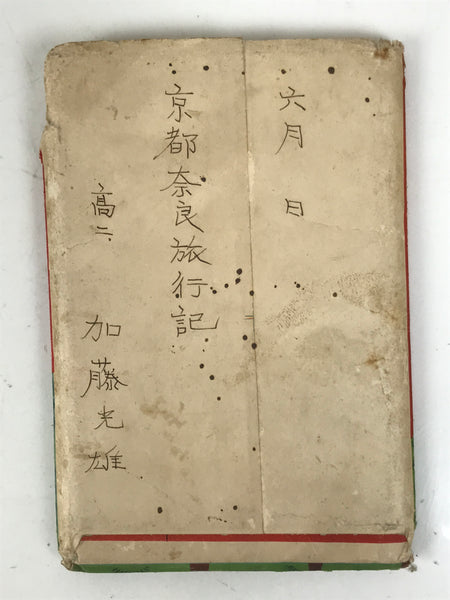 六月 日
京都奈良旅行記
高二 加藤光雄